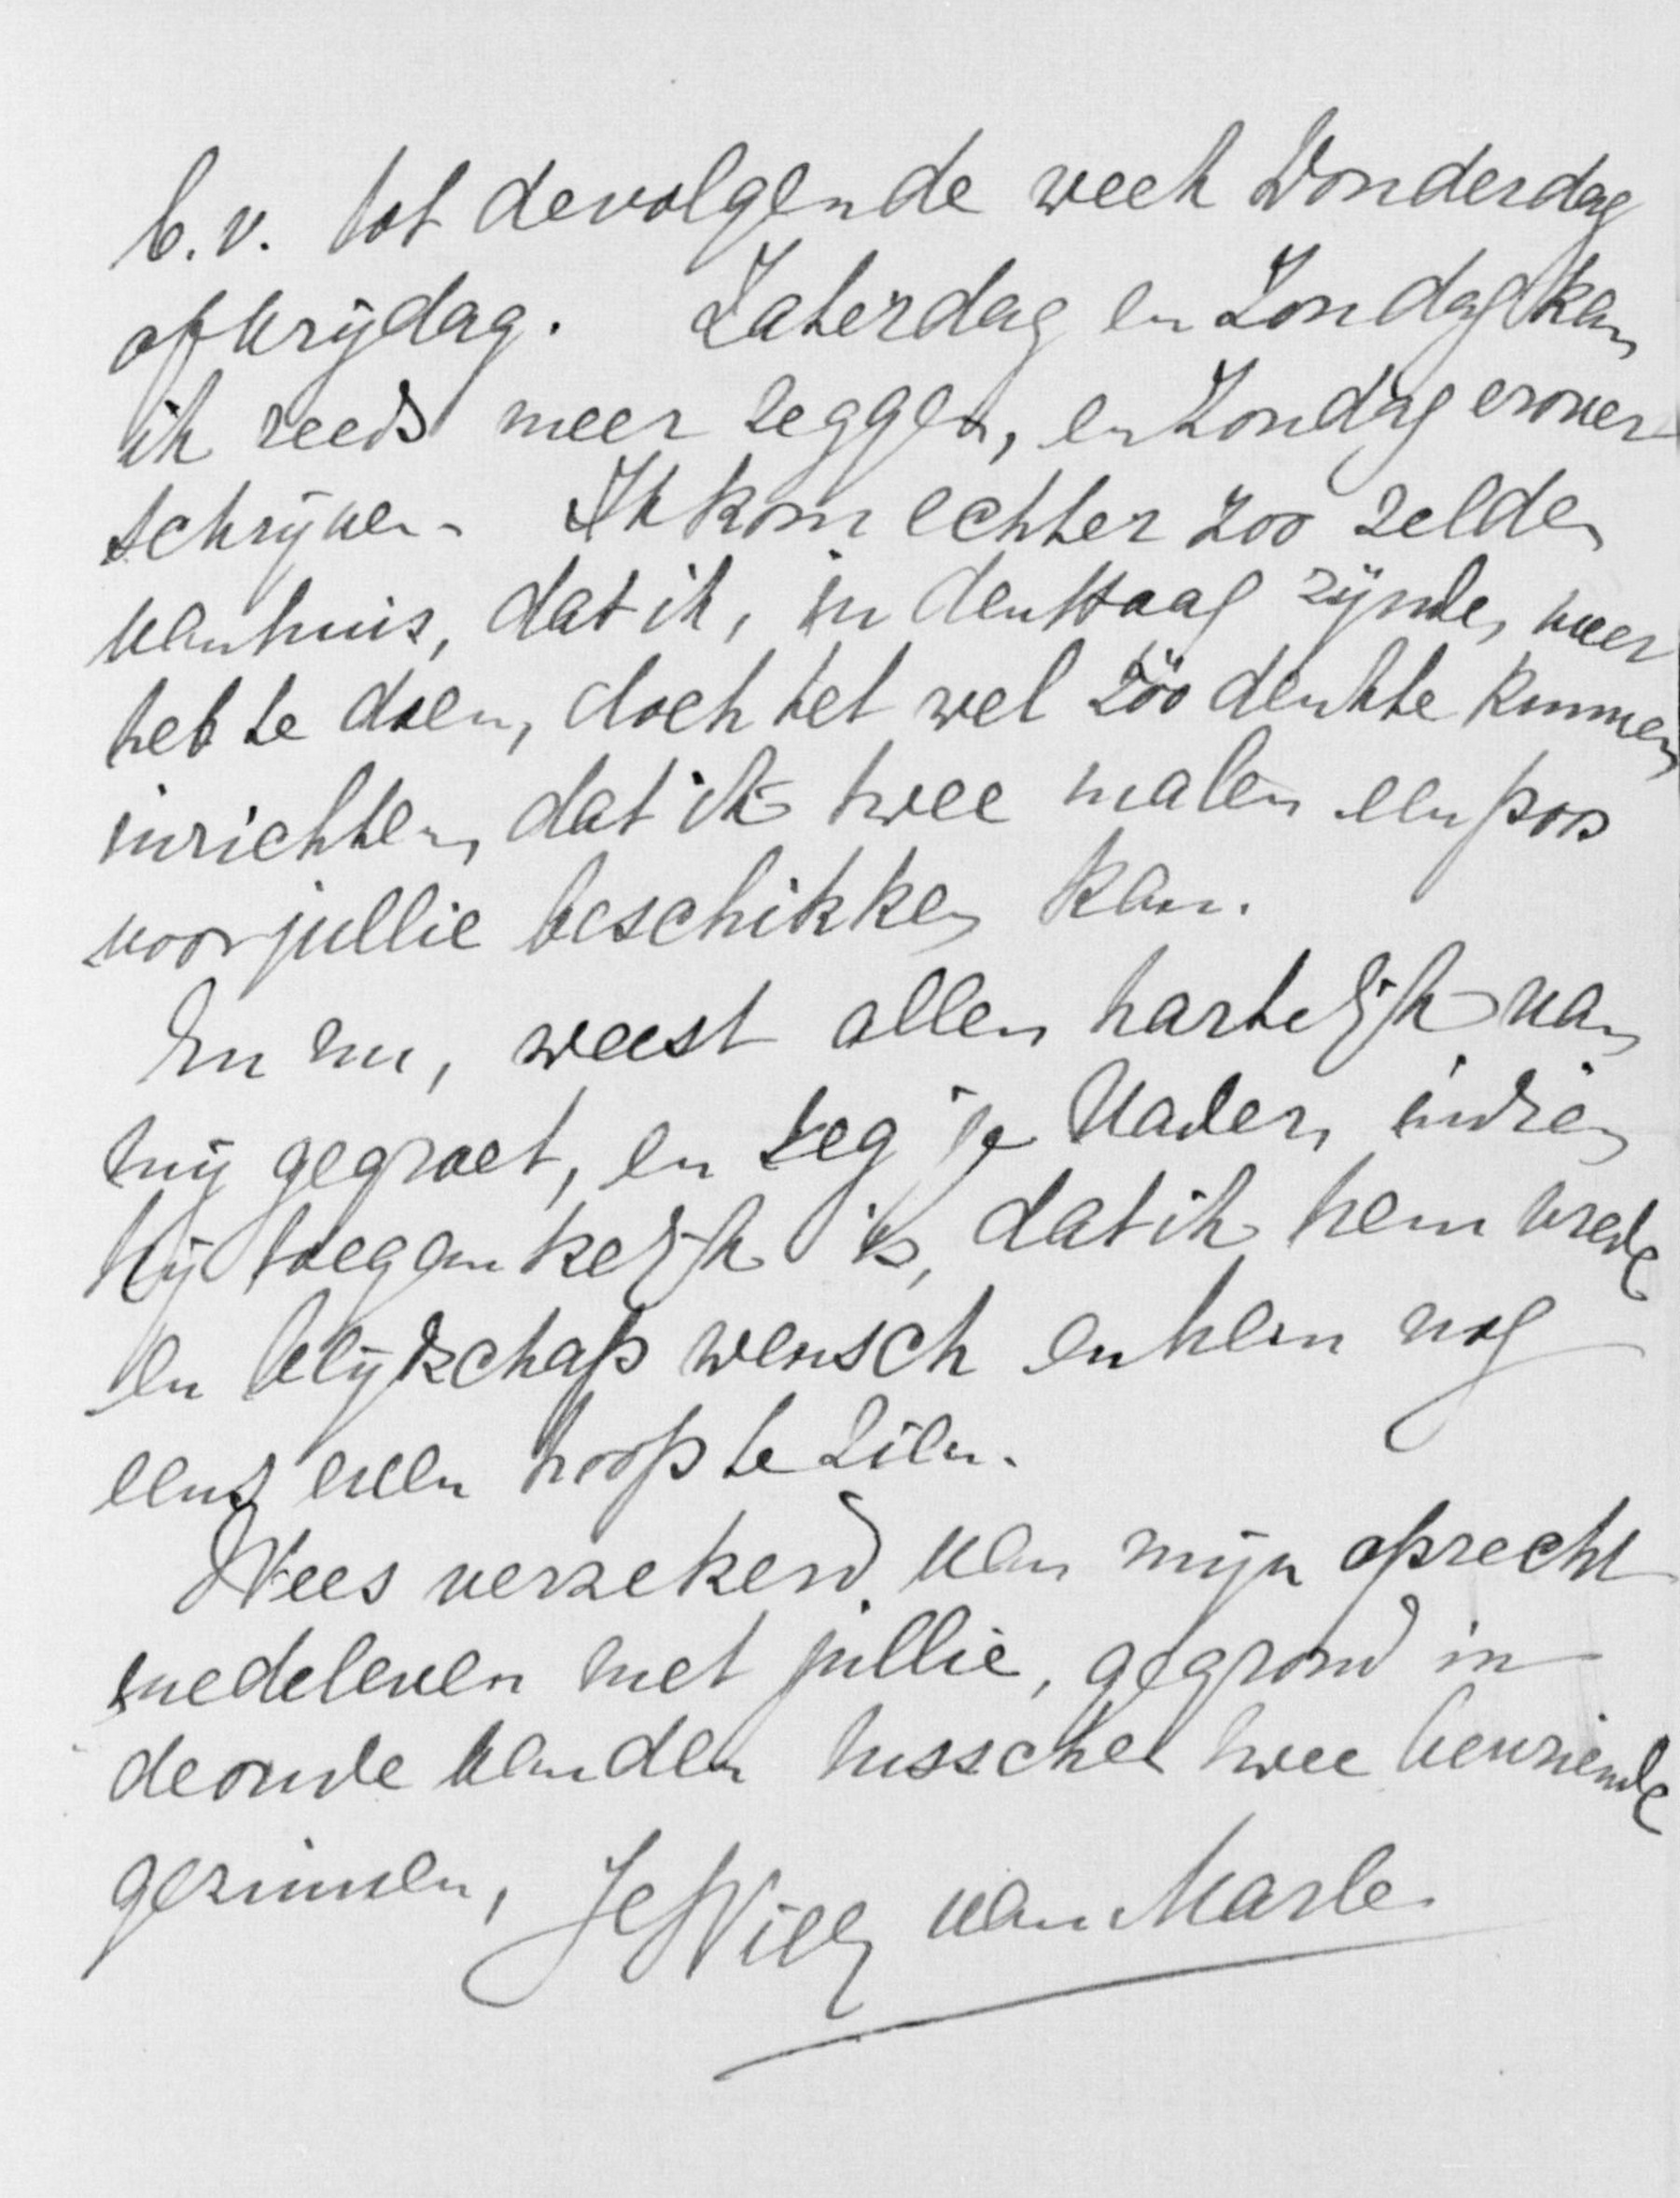 b.v. tot de volgende week Donderdag
of Vrijdag. Zaterdag en Zondag kan
ik reeds meer zeggen, en Zondag erover
schrijven. Ik kom echter zoo zelden
van huis, dat ik, in den Haag zijnde, meer
heb te doen, doch het wel zóó denk te kunnen
inrichten, dat ik twee malen een poos
voor jullie beschikken kan.
En nu, weest allen hartelijk van
mij gegroet, en zeg je Vader, indien
hij toegankelijk is, dat ik hem vrede
en blijdschap wensch en hem nog
eens even hoop te zien.
Wees verzekerd van mijn oprecht
medeleven met jullie, gegrond in
de oude banden tusschen twee bevriende
gezinnen, Je Willy van Marle